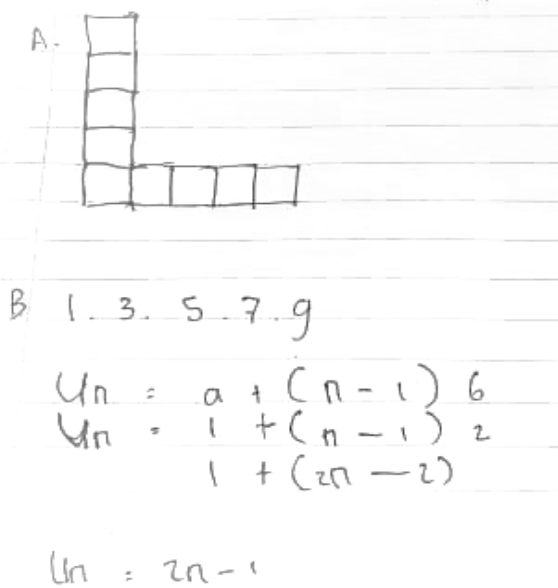 A.
B 1. 3. 5. 7. 9
Un = a + (n - 1) 6
Un = 1 + (n - 1) 2
1 + (2n - 2)
Un = 2n - 1